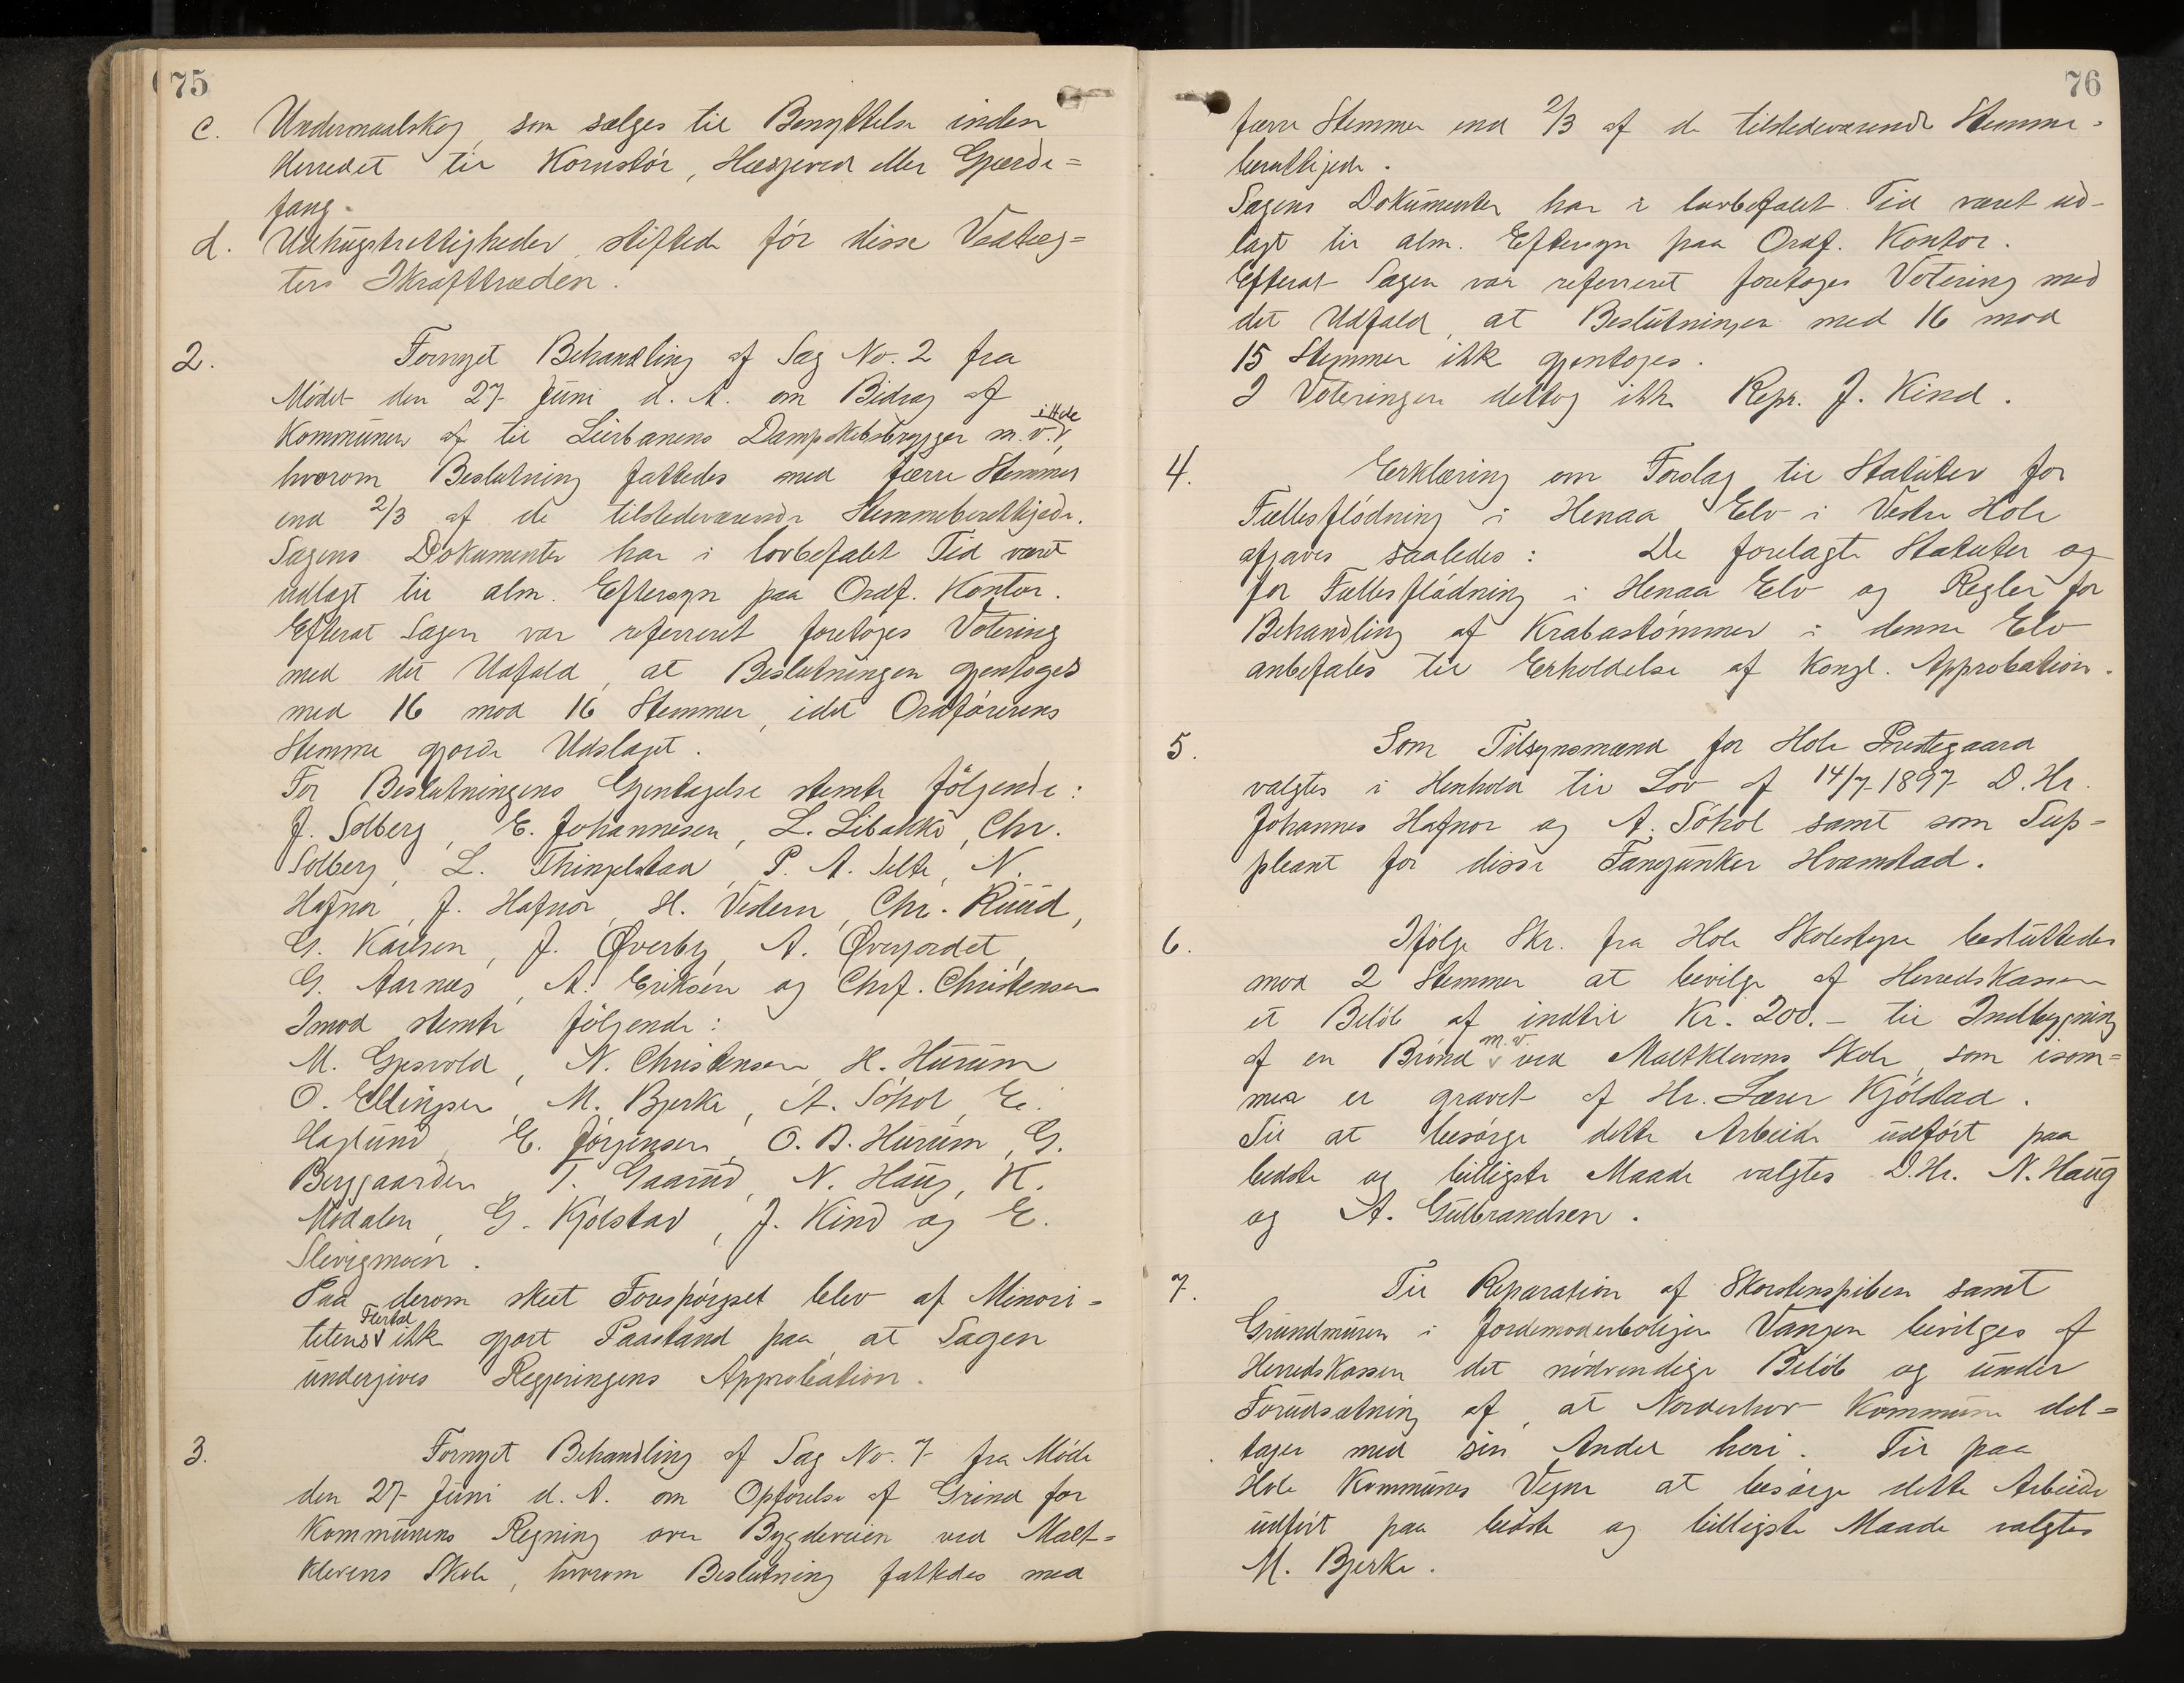 75
c. Undermaalskog, som sælges til Benyttelse inden
Herredet til Kornstör, Hæsjeved eller Gjærde=
fang.
d. Udhugstrettigheder, stiftede för disse Vedtæg=
ters Ikrafttræden.
2. Fornyet Behandling af Sag No. 2 fra
Mödet den 27 Juni d. A. om Bidrag af
Kommunen af til Lierbanens Dampskibsbrygger m. v. i Hole,
hvorom Beslutning fattedes med færre Stemmer
end 2/3 af de tilstedeværende Stemmeberettigede.
Sagens Dokumenter har i lovbefalet Tid været
udlagt til alm. Eftersyn paa Ordf. Kontor.
Efterat Sagen var refereret foretoges Votering
med det Udfald, at Beslutningen gjentoges
med 16 mod 16 Stemmer, idet Ordförerens
Stemme gjorde Udslaget.
For Beslutningens Gjentagelse stemte fölgende:
J. Solberg, E. Johannesen, L. Libakke, Chr.
Solberg, L. Thingelstad, P. A. Selte, N.
Hafnor, J. Hafnor, H. Vestern, Chr. Ruud,
G. Karlsen, J. Øverby, A. Øverjordet,
G. Aarnæs, A. Eriksen og Chrf. Christensen
Imod stemte fölgende:
M. Gjesvold, N. Christensen, H. Hurum
O. Ellingsen, M. Bjerke, A. Söhol, E.
Haglund, E. Jörgensen, O. B. Hurum, G.
Berggaarden, T. Gaarud, N. Haug, K.
Modalen, G. Kjölstad, J. Kind og E.
Slevigmoen.
Paa derom skeet Forespörgsel blev af Minori=
tetens Flertal ikke gjort Paastand paa, at Sagen
undergives Regjeringens Approbation.
3. Fornyet Behandling af Sag No. 7 fra Möde
den 27 Juni d. A. om Opförelse af Grind for
Kommunens Regning over Bygdeveien ved Malt=
klevens Skole, hvorom Beslutning fattedes med
76
færre Stemmer end 2/3 af de tilstedeværende Stemme=
berettigede.
Sagens Dokumenter har i lovbefalet Tid været ud-
lagt til alm. Eftersyn paa Ordf. Kontor.
Efterat Sagen var referreret foretoges Votering med
det Udfald, at Beslutningen med 16 mod
15 Stemmer ikke gjentoges.
I Voteringen deltog ikke Repr. J. Kind.
4. Erklæring om Forslag til Statuter for
Fællesflödning i Henaa Elv i Vestre Hole
afgaves saaledes: De forelagte Statuter og
for Fællesflödning i Henaa Elv og Regler for
Behandling af Krabastömmer i denne Elv
anbefales til Erholdelse af Kongl. Approbation.
5. Som Tilsynsmænd for Hole Prestegaard
valgtes i Henhold til Lov af 14/7 1897 D. Hr.
Johannes Hafnor og A. Söhol samt som Sup=
pleant for disse Fanejunker Hvamstad.
6. Ifölge Skr. fra Hole Skolestyre besluttedes
mod 2 Stemmer at bevilge af Herredskassen
et Belöb af indtil Kr. 200.- til Indbygning
af en Brönd m. v. ved Maltklevens Skole, som isom=
mer er gravet af Hr. Lærer Kjölstad.
Til at besörge dette Arbeide udfört paa
bedste og billigste Maade valgtes D. Hr. N. Haug
og A. Gulbrandsen.
7. Til Reparation af Skorstenspiben samt
Grundmuren i Jordemoderboligen Vangen bevilges af
Herredskassen det nödvendige Belöb og under
Forudsætning af, at Norderhov Kommune del=
tager med sin Andel heri. Til paa
Hole Kommunes Vegne at besörge dette Arbeide
udfört paa bedste og billigste Maade valgtes
M. Bjerke.